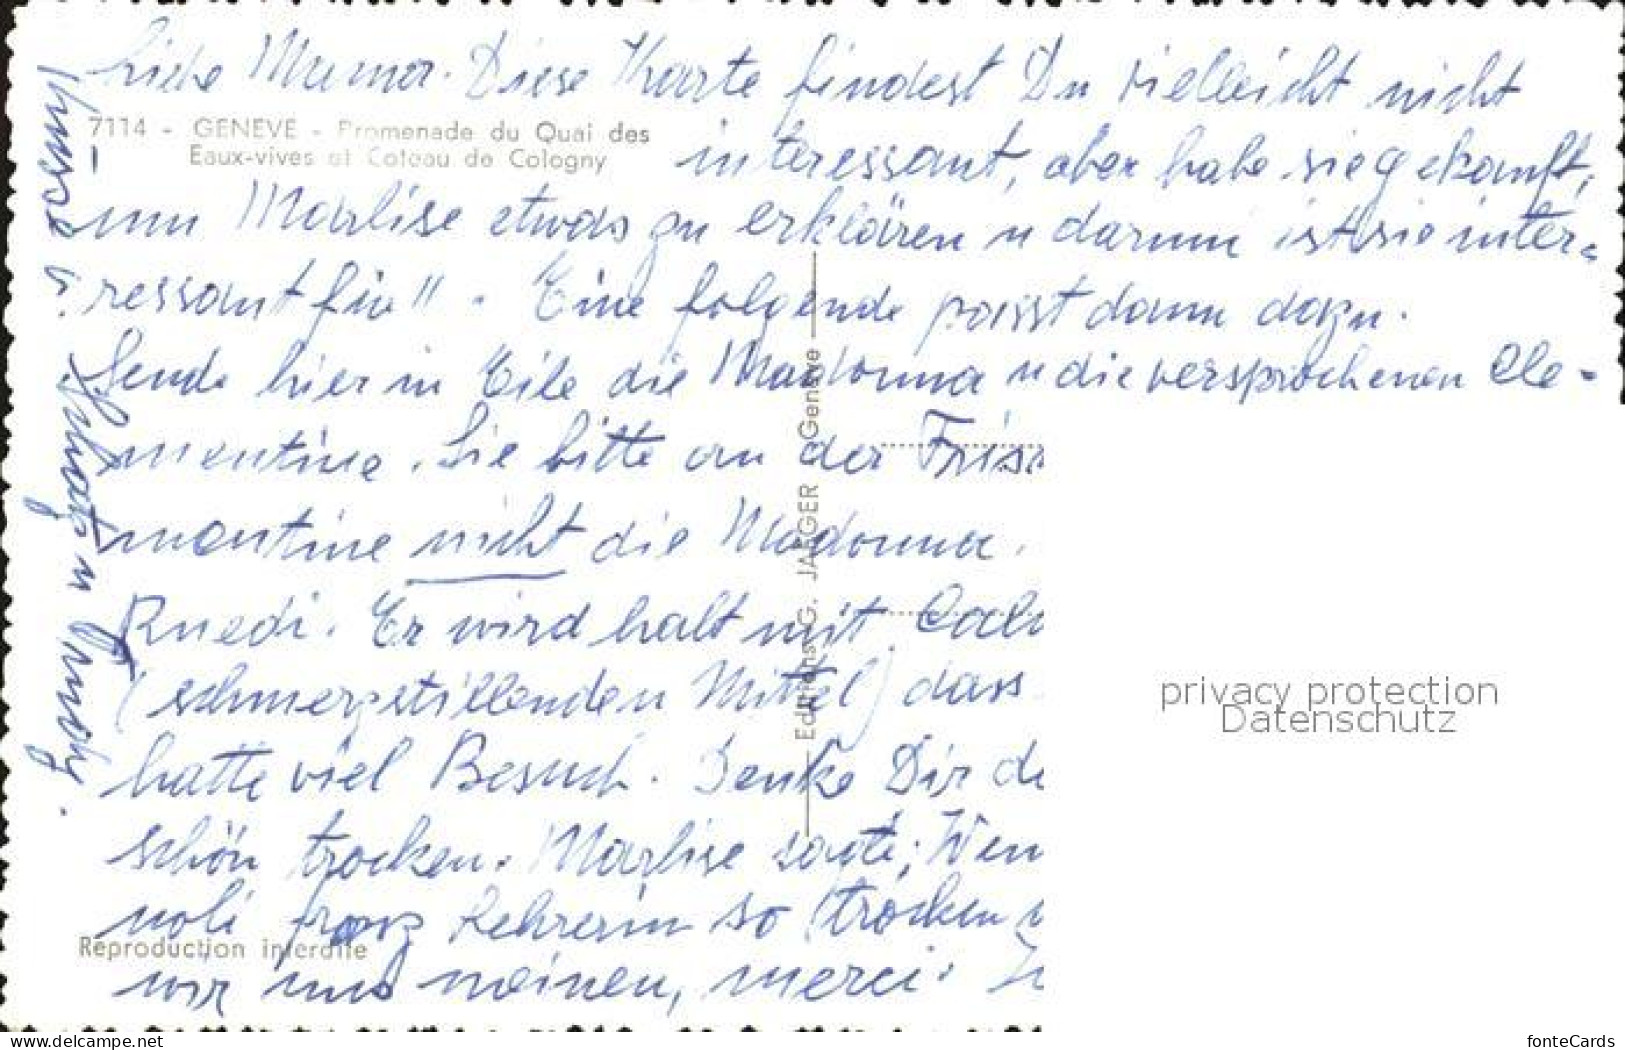 Liebe Muma. Diese Karte findest Du vielleicht nicht
7114 - GENEVE - Promenade du Quai des
Eaux-vives et Coteau de Cologny
interessant, aber habe sie gekauft,
um Marlise etwas zu erklären u darum ist sie inter=
ressant für " . Eine folgende passt dann dazu.
Sende hier in Eile die Madonna u die versprochenen Cle-
mentine. Sie bitte an der Fris
mentine nicht die Madonna.
Ruedi. Er wird halt mit
(schmerzstillenden Mittel) dass
hatte viel Besuch. Denke Dir de
schön trocken. Marlise sagte; Wen
noli franz Lehrerin so trocken
Reproduction interdite
wir uns meinen, merci.
Editions G. JAEGER - Genève
privacy protection
Datenschutz
www.delcampe.net
fonteCards